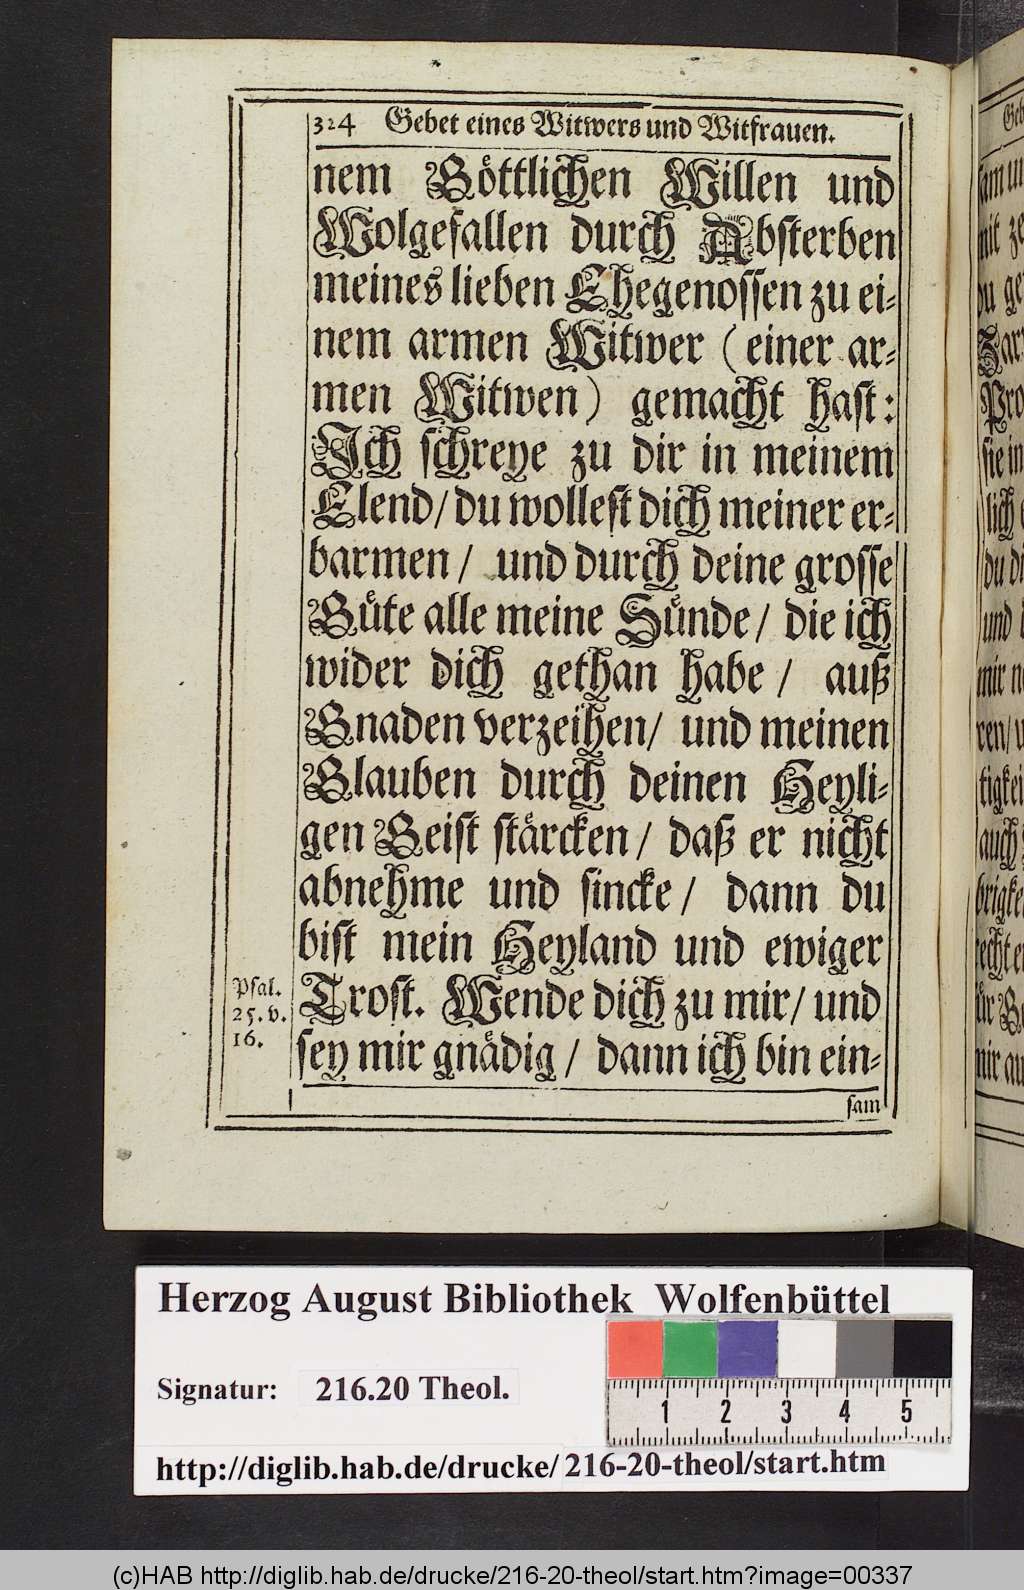 324 Gebet eines Witwers und Witfrauen.
nem Göttlichen Willen und
Wolgefallen durch Absterben
meines lieben Ehegenossen zu ei-
nem armen Witwer (einer ar-
men Witwen) gemacht hast:
Ich schreye zu dir in meinem
Elend/ du wollest dich meiner er-
barmen/ und durch deine grosse
Güte alle meine Sünde/ die ich
wider dich gethan habe/ auß
Gnaden verzeihen/ und meinen
Glauben durch deinen Heyli-
gen Geist stärcken/ daß er nicht
abnehme und sincke/ dann du
bist mein Heyland und ewiger
Trost. Wende dich zu mir/ und
sey mir gnädig/ dann ich bin ein-
sam
Psal.
25. v.
16.
Herzog August Bibliothek Wolfenbüttel
Signatur: 216.20 Theol.
1 2 3 4 5
http://diglib.hab.de/drucke/216-20-theol/start.htm
(c)HAB http://diglib.hab.de/drucke/216-20-theol/start.htm?image=00337